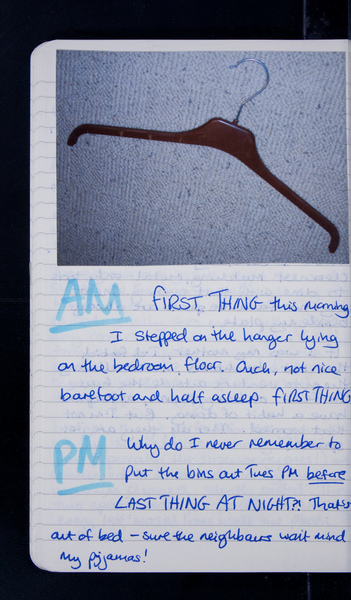 AM FIRST THING this morning
I stepped on the hanger lying
on the bedroom floor. Ouch, not nice
barefoot and half asleep FIRST THING
PM Why do I never remember to
put the bins out Tues PM before
LAST THING AT NIGHT?! That's
out of bed – sure the neighbours wait mind
my pyjamas!